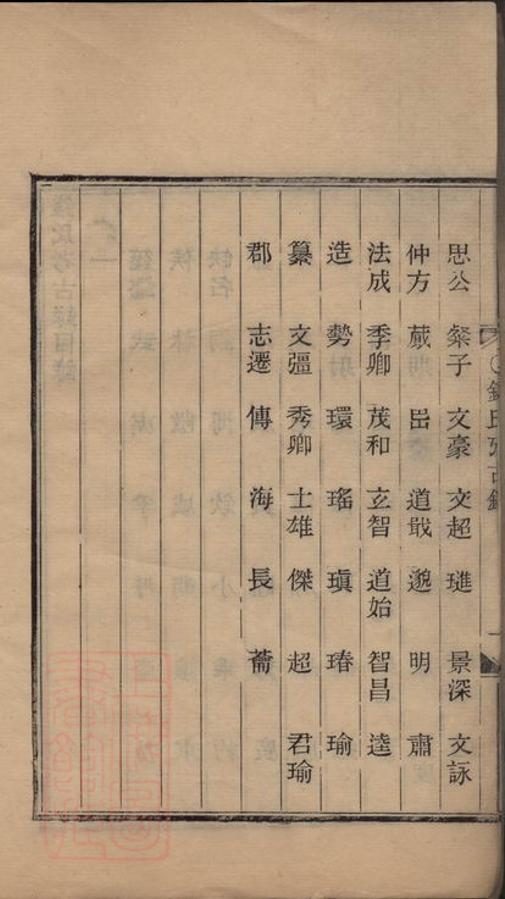 思公 粲子 文豪 文超 璡 景深 文詠
仲方 蕆 岊 道戢 邈 明 肅
法成 季卿 茂和 玄智 道始 智昌 逵
造 勢 環 瑤 瑱 瑃 瑜
纂 文彊 秀卿 士雄 傑 超 君瑜
郡 志遷 傳 海 長 薾